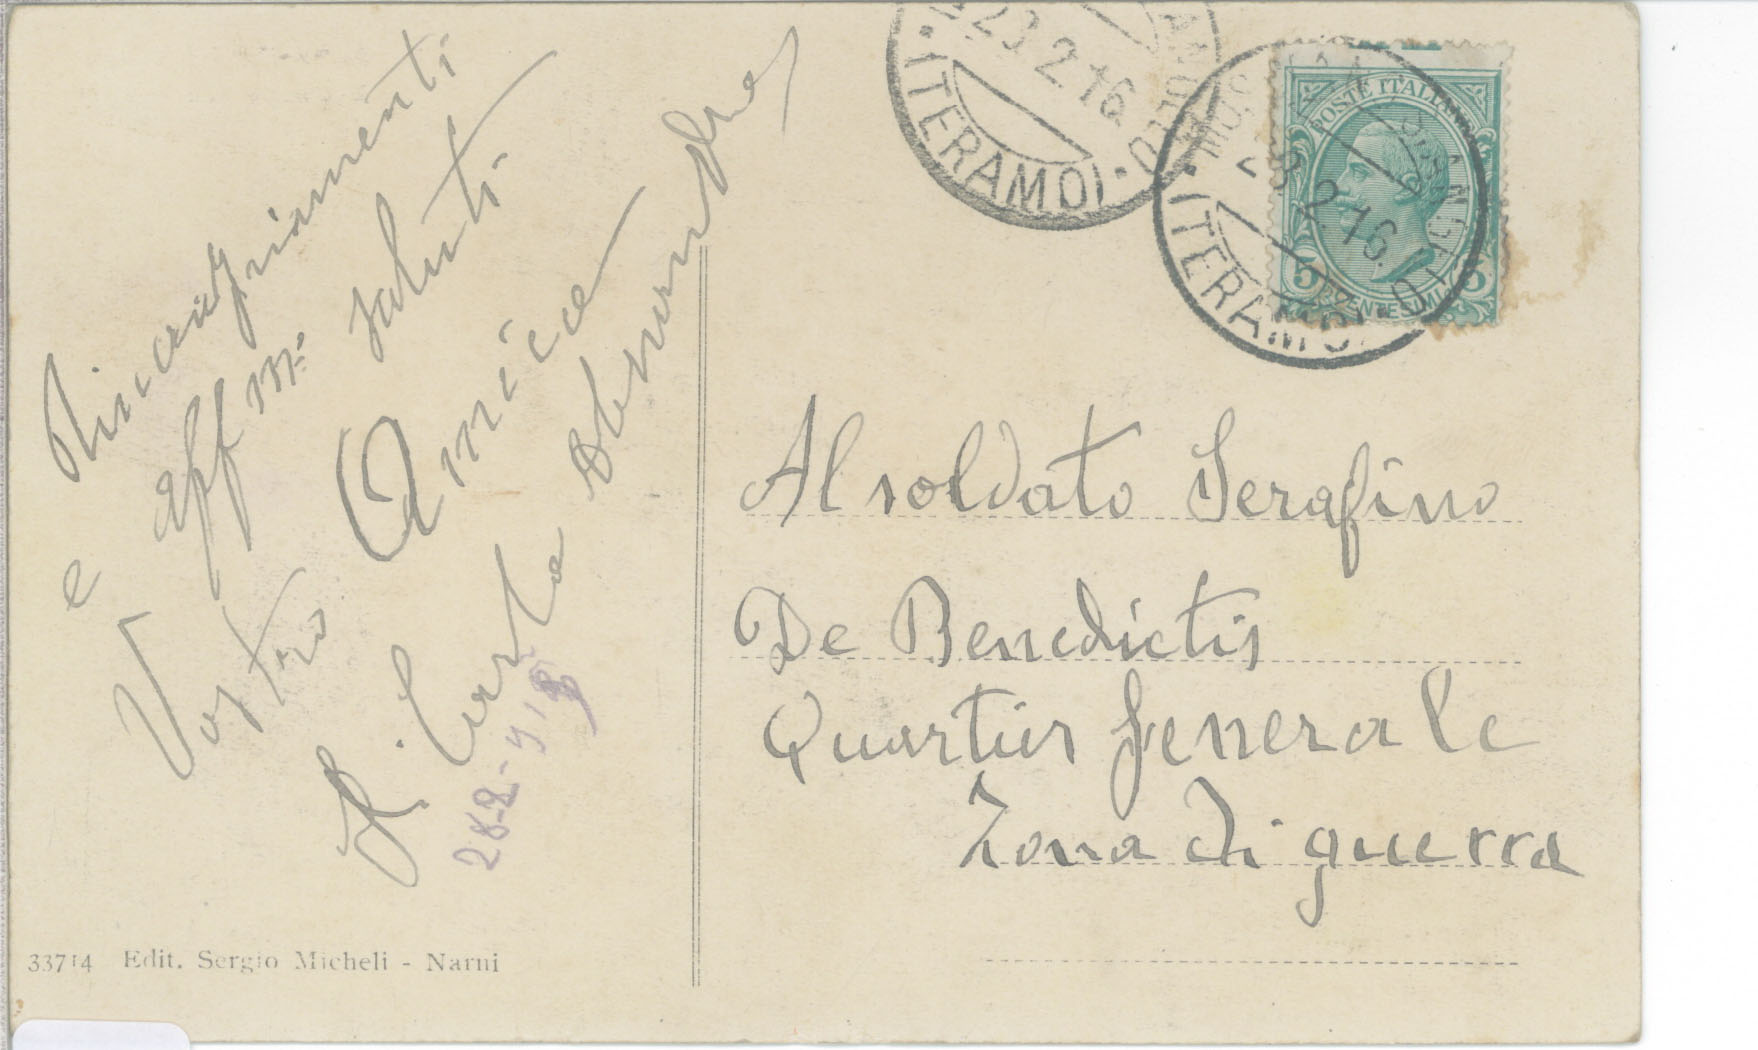 Ringraziamenti
e affmi saluti
Vostro Amico
23.2.16
(TERAMO)
POSTE ITALIANE
23.2.16
5 CENTESIMI 5
(TERAMO)
Al soldato Serafino
De Benedictis
Quartier Generale
Zona di guerra
33714 Edit. Sergio Micheli - Narni